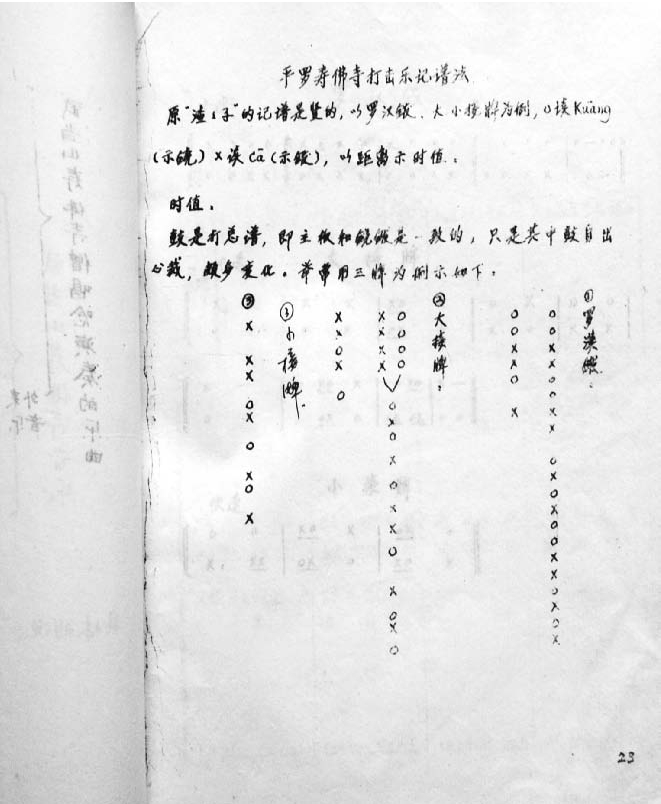 平罗寿佛寺打击乐记谱法
原"渣渣子"的记谱是竖的，以罗汉钹、大小接牌为例，O读Kuāng
（示铙）X读cā（示钹），以距离示时值。
时值。
鼓是打总谱，即主板和铙钹是一致的，只是其中鼓自出
心裁，颇多变化。常用三牌为例示如下：
①罗汉钹：
O O X X O X O X O X X X O X O X O O X X X O X O X
O O X X O X
②大接牌：
O O O O O X O X O X X O X O X O
X X X X
X X O X O
③小接牌
③
X X X O X O X O X
23